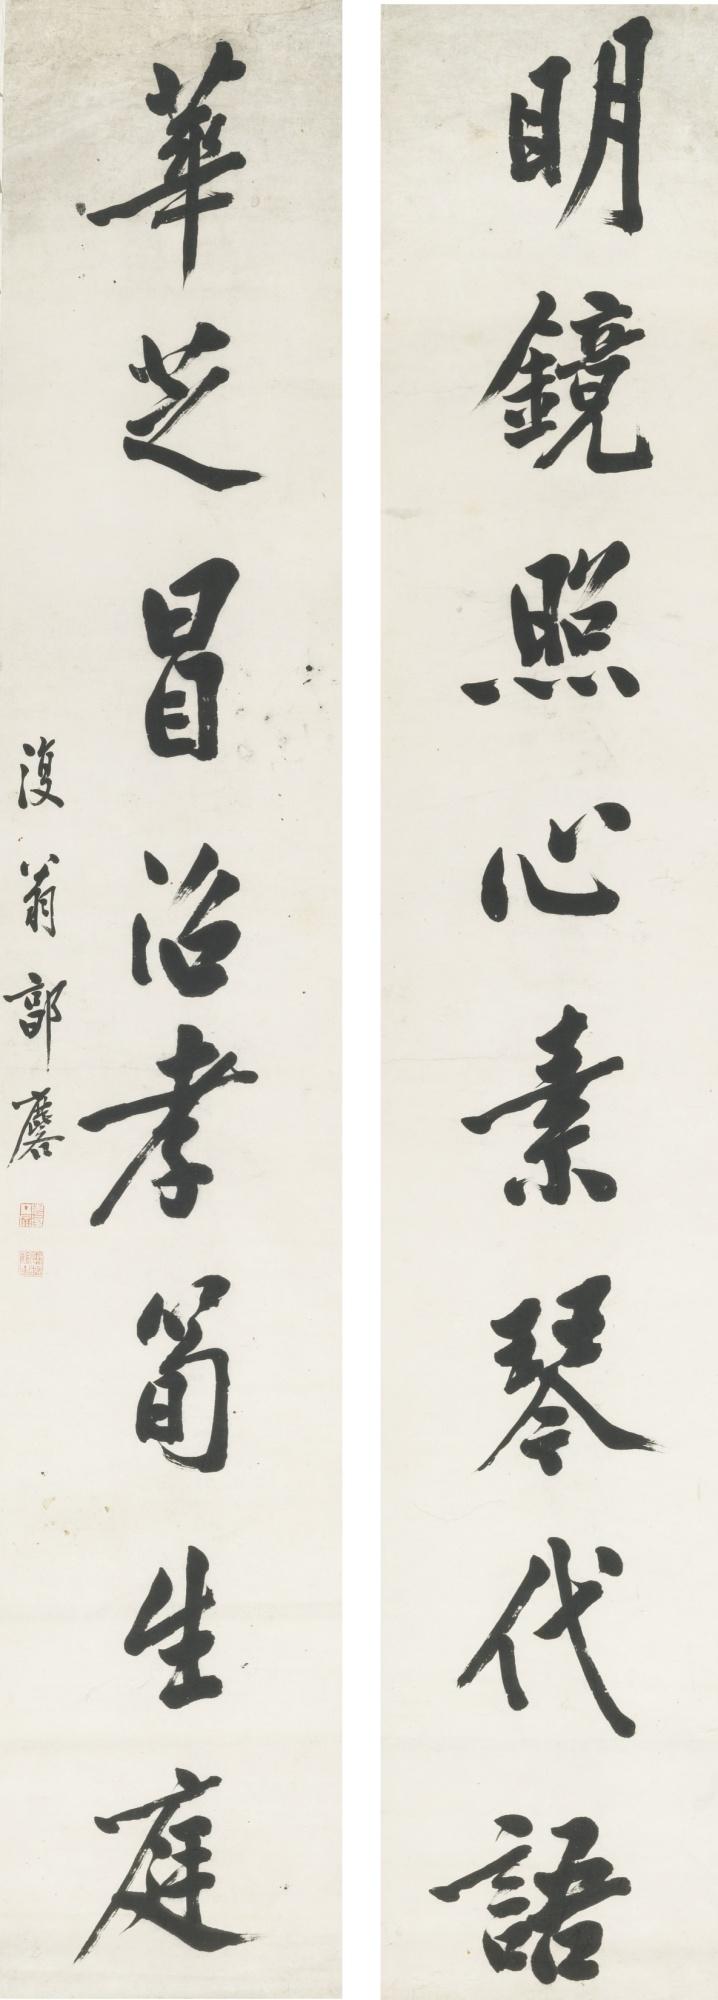 明鏡照心素琴代語
華芝冒沼孝筍生庭
復翁郭麐